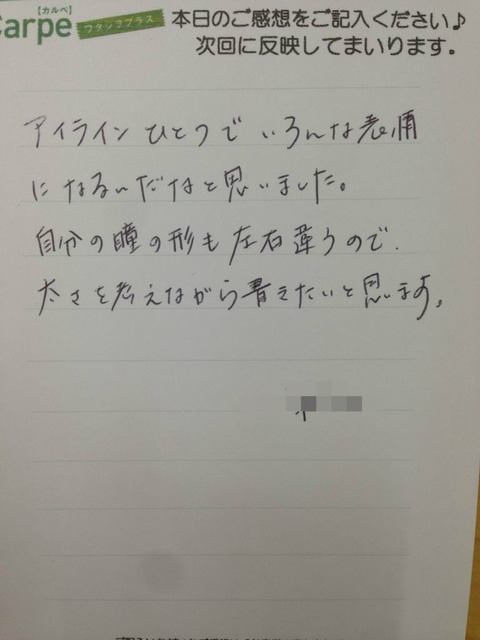 【カルペ】
Carpe
ワタシヲプラス
本日のご感想をご記入ください♪
次回に反映してまいります。
アイラインひとつでいろんな表情
になるんだなと思いました。
自分の瞳の形も左右違うので、
太さを考えながら書きたいと思います。